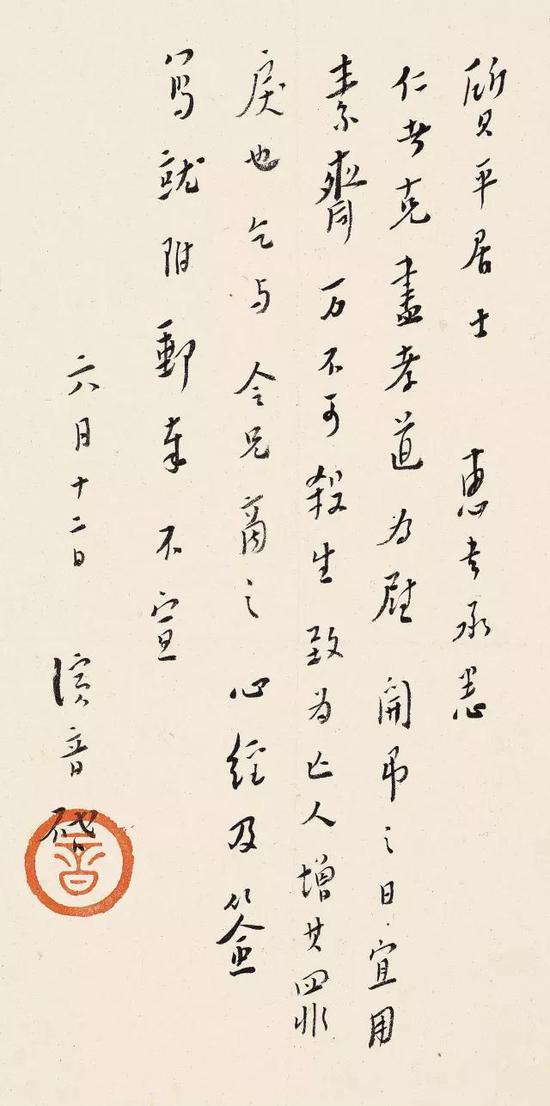 質平居士 惠書承悉
仁者克盡孝道為慰 開弔之日宜用
素齋万不可殺生致為亡人增其罪
戾也乞与 令兄商之 心經及簽
寫就附郵奉 不宣
六月十二日 演音 啓
音